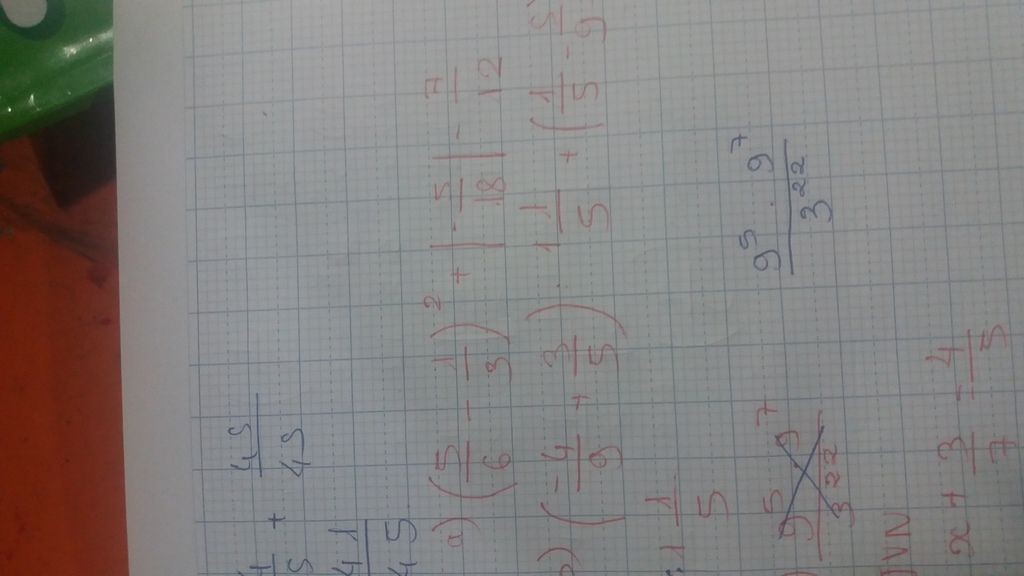 + 45/45
41/45
a) (5/6 - 1/3)² + |-5/18| - 7/12
) (-4/9 + 3/5) : 1 1/5 + (1/5 - 5/9
: 1 1/5
9⁵ . 9⁷ / 3²²
9⁵ . 9⁷ / 3²²
x + 3/7 = 4/5